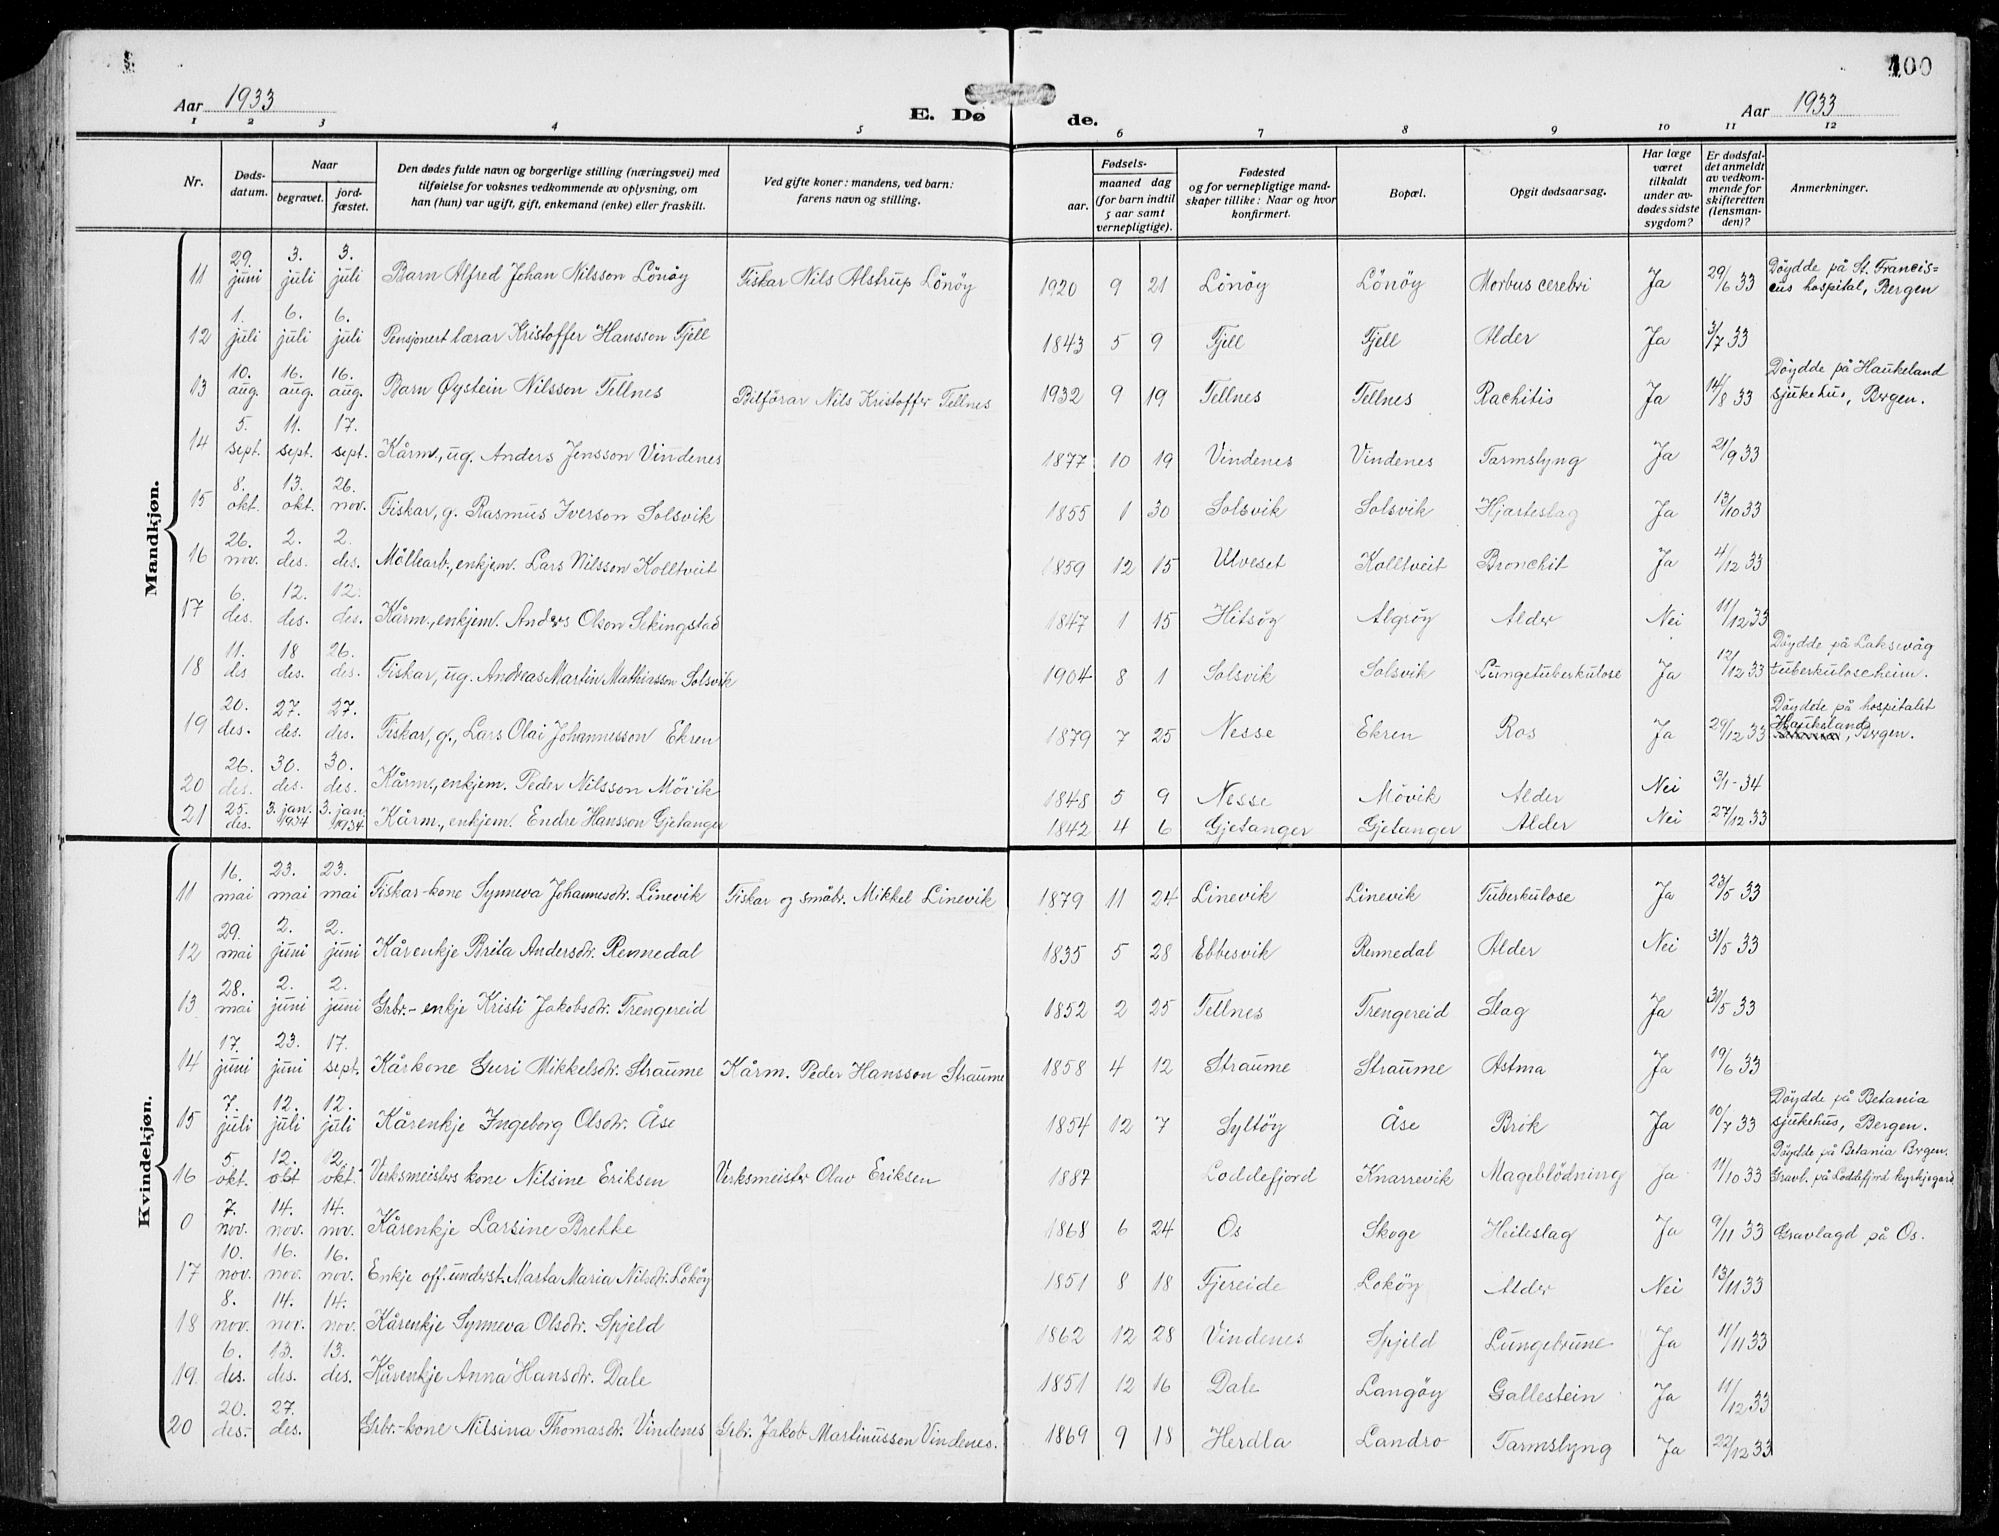 100
Aar 1933
E. Dø
de.
Aar 1933
1 2 3 4 5 6 7 8 9 10 11 12
Nr.
Døds-
datum.
Naar
begravet.
jord-
fæstet.
Den dødes fulde navn og borgerlige stilling (næringsvei) med
tilføielse for voksnes vedkommende av oplysning, om
han (hun) var ugift, gift, enkemand (enke) eller fraskilt.
Ved gifte koner: mandens, ved barn:
farens navn og stilling.
Fødsels-
aar.
maaned dag
(for barn indtil
5 aar samt
vernepligtige).
Fødested
og for vernepligtige mand-
skaper tillike: Naar og hvor
konfirmert.
Bopæl.
Opgit dødsaarsag.
Har læge
været
tilkaldt
under av-
dødes sidste
sygdom?
Er dødsfal-
det anmeldt
av vedkom-
mende for
skifteretten
(lensman-
den)?
Anmerkninger.
Mandkjøn.
11 29. juni 3. juli 3. juli Barn Alfred Johan Nilsson Lönöy Fiskar Nils Alstrup Lönöy 1920 9 21 Lönöy Lönöy Morbus cerebri Ja 29/6 33 Döydde på St. Francis=
cus hospital, Bergen
12 1. juli 6. juli 6. juli Pensjonert lærar Kristoffer Hansson Fjell 1843 5 9 Fjell Fjell Alder Ja 3/7 33
13 10. aug. 16. aug. 16. aug. Barn Øystein Nilsson Tellnes Bilförar Nils Kristoffer Tellnes 1932 9 19 Tellnes Tellnes Rachitis Ja 14/8 33 Döydde på Haukeland
sjukehus, Bergen.
14 5. sept. 11. sept. 17. sept. Kårm., ug. Anders Jensson Vindenes 1877 10 19 Vindenes Vindenes Tarmslyng Ja 21/9 33
15 8. okt. 13. okt. 26. nov. Fiskar, g. Rasmus Iverson Solsvik 1855 1 30 Solsvik Solsvik Hjarteslag Ja 13/10 33
16 26. nov. 2. des. 2. des. Möllearb., enkjem. Lars Nilsson Kolltveit 1859 12 15 Ulveset Kolltveit Bronchit Ja 4/12 33
17 6. des. 12. des. 12. des. Kårm., enkjem. Anders Olson Sekingstad 1847 1 15 Hitsöy Algröy Alder Nei 11/12 33
18 11. des 18 des. 26. des. Fiskar, ug. Andreas Martin Mathiasson Solsvik 1904 8 1 Solsvik Solsvik Lungetuberkulose Ja 12/12 33 Döydde på Laksevåg
tuberkuloseheim.
19 20. des. 27. des. 27. des. Fiskar, g., Lars Olai Johannesson Ekren 1879 7 25 Nesse Ekren Ros Ja 29/12 33 Döydde på hospitalet
Haukeland, Bergen.
20 26. des. 30. des. 30. des. Kårm., enkjem. Peder Nilsson Mövik 1848 5 9 Nesse Mövik Alder Nei 3/1-34
21 25. des. 3. jan. 1934 3. jan. 1934. Kårm., enkjem. Endre Hansson Gjetanger 1842 4 6 Gjetanger Gjetanger Alder Nei 27/12 33
Kvindekjøn.
11 16. mai 23. mai 23. mai Fiskar-kone Synneva Johannesdr. Linevik Fiskar og småbr. Mikkel Linevik 1879 11 24 Linevik Linevik Tuberkulose Ja 23/5 33
12 29. mai 2. juni 2. juni Kårenkje Brita Andersdr. Remmedal 1835 5 28 Ebbesvik Remmedal Alder Nei 31/5 33
13 28. mai 2. juni 2. juni Grbr.-enkje Kristi Jakobsdr. Trengereid 1852 2 25 Tellnes Trengereid Slag Ja 30/5 33
14 17. juni 23. juni 17. sept. Kårkone Guri Mikkelsdr. Straume Kårm. Peder Hansson Straume 1858 4 12 Straume Straume Astma Ja 19/6 33
15 7. juli 12. juli 12. juli Kårenkje Ingeborg Olsdr. Åse 1854 12 7 Syltöy Åse Brok Ja 10/7 33 Döydde på Betania
sjukehus, Bergen.
16 5. okt. 12. okt 12. okt. Verksmeisters kone Nilsine Eriksen Verksmeister Olav Eriksen 1887 Loddefjord Knarrevik Mageblödning Ja 11/10 33 Döydde på Betania Bergen.
Gravl. på Loddefjord kyrkjegard
0 7. nov. 14. nov. 14. nov. Kårenkje Larsine Brekke 1868 6 24 Os Skoge Heileslag Ja 9/11 33 Gravlagd på Os.
17 10. nov. 16. nov. 16. nov. Enkje off. underst. Marta Maria Nilsdr. Loköy 1851 8 18 Fjereide Loköy Alder Nei 13/11 33
18 8. nov. 14. nov. 14. nov. Kårenkje Synneva Olsdr. Spjeld 1862 12 28 Vindenes Spjeld Lungebrune Ja 11/11 33
19 6. des. 13. des. 13. des. Kårenkje Anna Hansdr. Dale 1851 12 16 Dale Langöy Gallestein Ja 11/12 33
20 20. des.- 27. des. Grbr.-kone Nilsina Thomasdr. Vindenes Grbr. Jakob Martinusson Vindenes. 1869 9 18 Herdla Landro Tarmslyng Ja 22/12 33